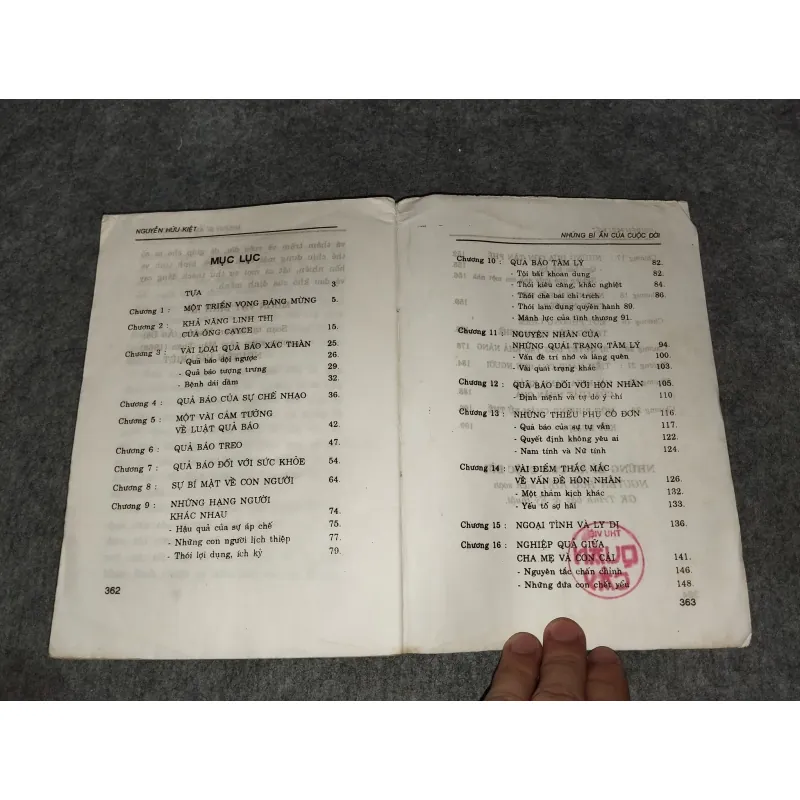 NGUYỄN HỮU KIỆT
MỤC LỤC
TỰA 3.
Chương 1 : MỘT TRIỂN VỌNG ĐÁNG MỪNG 5.
Chương 2 : KHẢ NĂNG LINH THỊ
CỦA ÔNG CAYCE 15.
Chương 3 : VÀI LOẠI QUẢ BÁO XÁC THÂN 25.
- Quả báo dội ngược 26.
- Quả báo tượng trưng 29.
- Bệnh dái dầm 32.
Chương 4 : QUẢ BÁO CỦA SỰ CHẾ NHẠO 36.
Chương 5 : MỘT VÀI CẢM TƯỞNG
VỀ LUẬT QUẢ BÁO 42.
Chương 6 : QUẢ BÁO TREO 47.
Chương 7 : QUẢ BÁO ĐỐI VỚI SỨC KHỎE 54.
Chương 8 : SỰ BÍ MẬT VỀ CON NGƯỜI 64.
Chương 9 : NHỮNG HẠNG NGƯỜI
KHÁC NHAU 74.
- Hậu quả của sự áp chế 75.
- Những con người lịch thiệp 77.
- Thói lợi dụng, ích kỷ 79.
362
NHỮNG BÍ ẨN CỦA CUỘC ĐỜI
Chương 10 : QUẢ BÁO TÂM LÝ 82.
- Tội bất khoan dung 82.
- Thói kiêu căng, khắc nghiệt 84.
- Thói chê bai chỉ trích 86.
- Thói lạm dụng quyền hành 89.
- Mãnh lực của tình thương 91.
Chương 11 : NGUYÊN NHÂN CỦA
NHỮNG QUÁI TRẠNG TÂM LÝ 94.
- Vấn đề trí nhớ và lãng quên 100.
- Vài quái trạng khác 103.
Chương 12 : QUẢ BÁO ĐỐI VỚI HÔN NHÂN 105.
- Định mệnh và tự do ý chí 110.
Chương 13 : NHỮNG THIẾU PHỤ CÔ ĐƠN 116.
- Quả báo của sự tự vẫn 117.
- Quyết định không yêu ai 122.
- Nam tính và Nữ tính 124.
Chương 14 : VÀI ĐIỂM THẮC MẮC
VỀ VẤN ĐỀ HÔN NHÂN 126.
- Một thảm kịch khác 132.
- Yếu tố sợ hãi 133.
Chương 15 : NGOẠI TÌNH VÀ LY DỊ 136.
Chương 16 : NGHIỆP QUẢ GIỮA
CHA MẸ VÀ CON CÁI 141.
- Nguyên tắc chân chính 146.
- Những đứa con chết yểu 148.
363